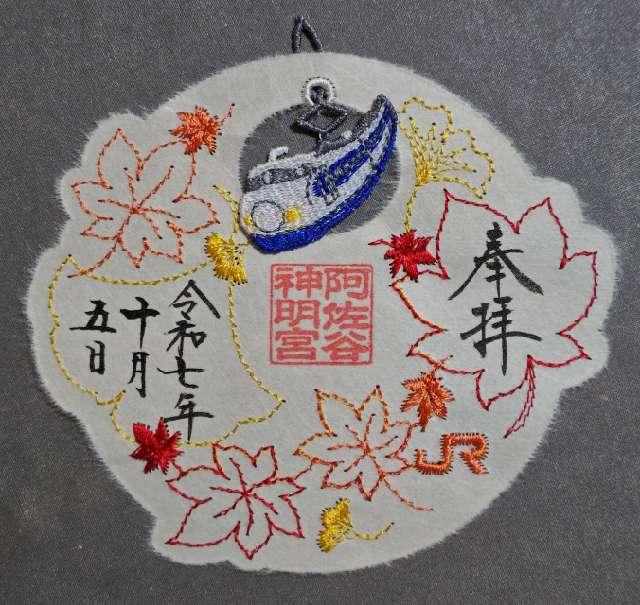 奉拝
阿佐谷
神明宮
令和七年
十月
五日
JR